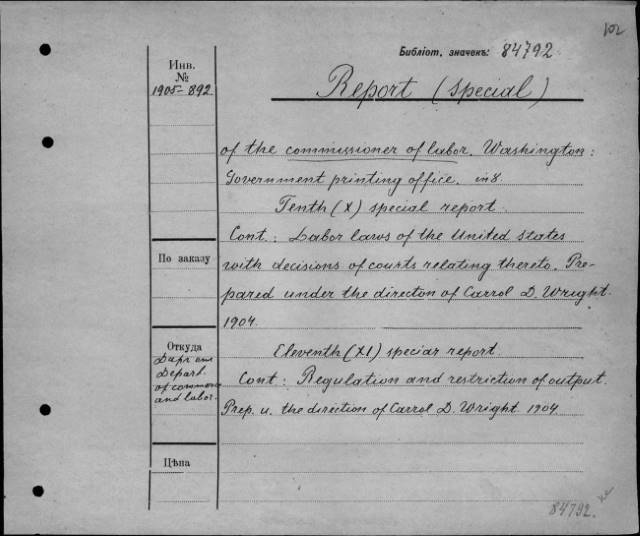 102
Библіот, значекъ: 84792
Инв.
№
1905-892
Report (special)
of the commissioner of labor. Washington:
Government printing office. in 8.
Tenth (X) special report
Cont: Labor laws of the United states
По заказу
with decisions of courts relating thereto. Pre-
pared under the directon of Carrol D. Wright.
1904.
Откуда
Даръ отъ
Depart.
of commerce
and labor.
Eleventh (XI) special report.
Cont: Regulation and restriction of output.
Prep. u. the direction of Carrol D. Wright. 1904.
Цѣна
84792.